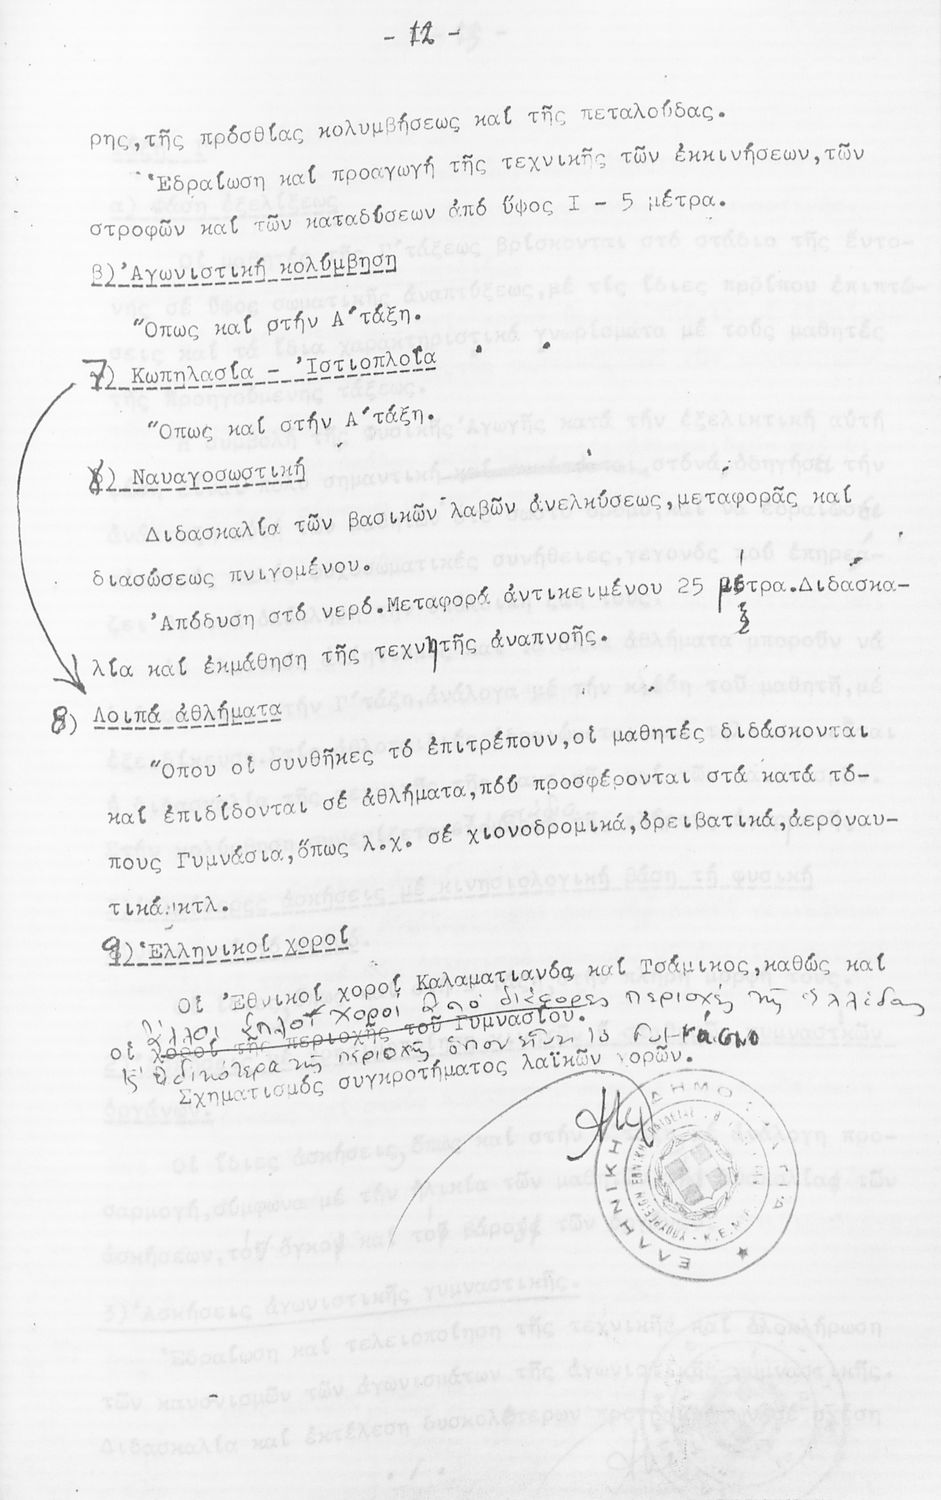 - 12 -
ρης,τῆς πρόσθίας κολυμβήσεως καί τῆς πεταλούδας.
Ἑδραίωση καί προαγωγή τῆς τεχνικῆς τῶν ἐκκινήσεων,τῶν
στροφῶν καί τῶν καταδύσεων ἀπό ὕψος I - 5 μέτρα.
β)Ἀγωνιστική κολύμβηση
Ὅπως καί στήν Α΄τάξη.
7) Κωπηλασία - Ἱστιοπλοΐα
Ὅπως καί στήν Α΄τάξη.
γ) Ναυαγοσωστική
Διδασκαλία τῶν βασικῶν λαβῶν ἀνελκύσεως,μεταφορᾶς καί
διασώσεως πνιγομένου.
Ἀπόδυση στό νερό.Μεταφορά ἀντικειμένου 25 μέτρα.Διδασκα-
λία καί ἐκμάθηση τῆς τεχνητῆς ἀναπνοῆς.
8) Λοιπά ἀθλήματα
Ὅπου οἱ συνθῆκες τό ἐπιτρέπουν,οἱ μαθητές διδάσκονται
καί ἐπιδίδονται σέ ἀθλήματα,πού προσφέρονται στά κατά τό-
πους Γυμνάσια,ὅπως λ.χ. σέ χιονοδρομικά,ὀρειβατικά,ἀεροναυ-
τικά κτλ.
9) Ἑλληνικοί χοροί
Οἱ Ἐθνικοί χοροί Καλαματιανός καί Τσάμικος,καθώς καί
ἄλλοι ἁπλοῖ χοροί ἀπό διάφορες περιοχές τῆς Ἑλλάδας
οἱ χοροί τῆς περιοχῆς τοῦ Γυμνασίου.
κ' εἰδικότερα τῆς περιοχῆς ὅπου εἶναι τό Γυμνάσιο
Σχηματισμός συγκροτήματος λαϊκῶν χορῶν.
ΕΛΛΗΝΙΚΗ ΔΗΜΟΚΡΑΤΙΑ